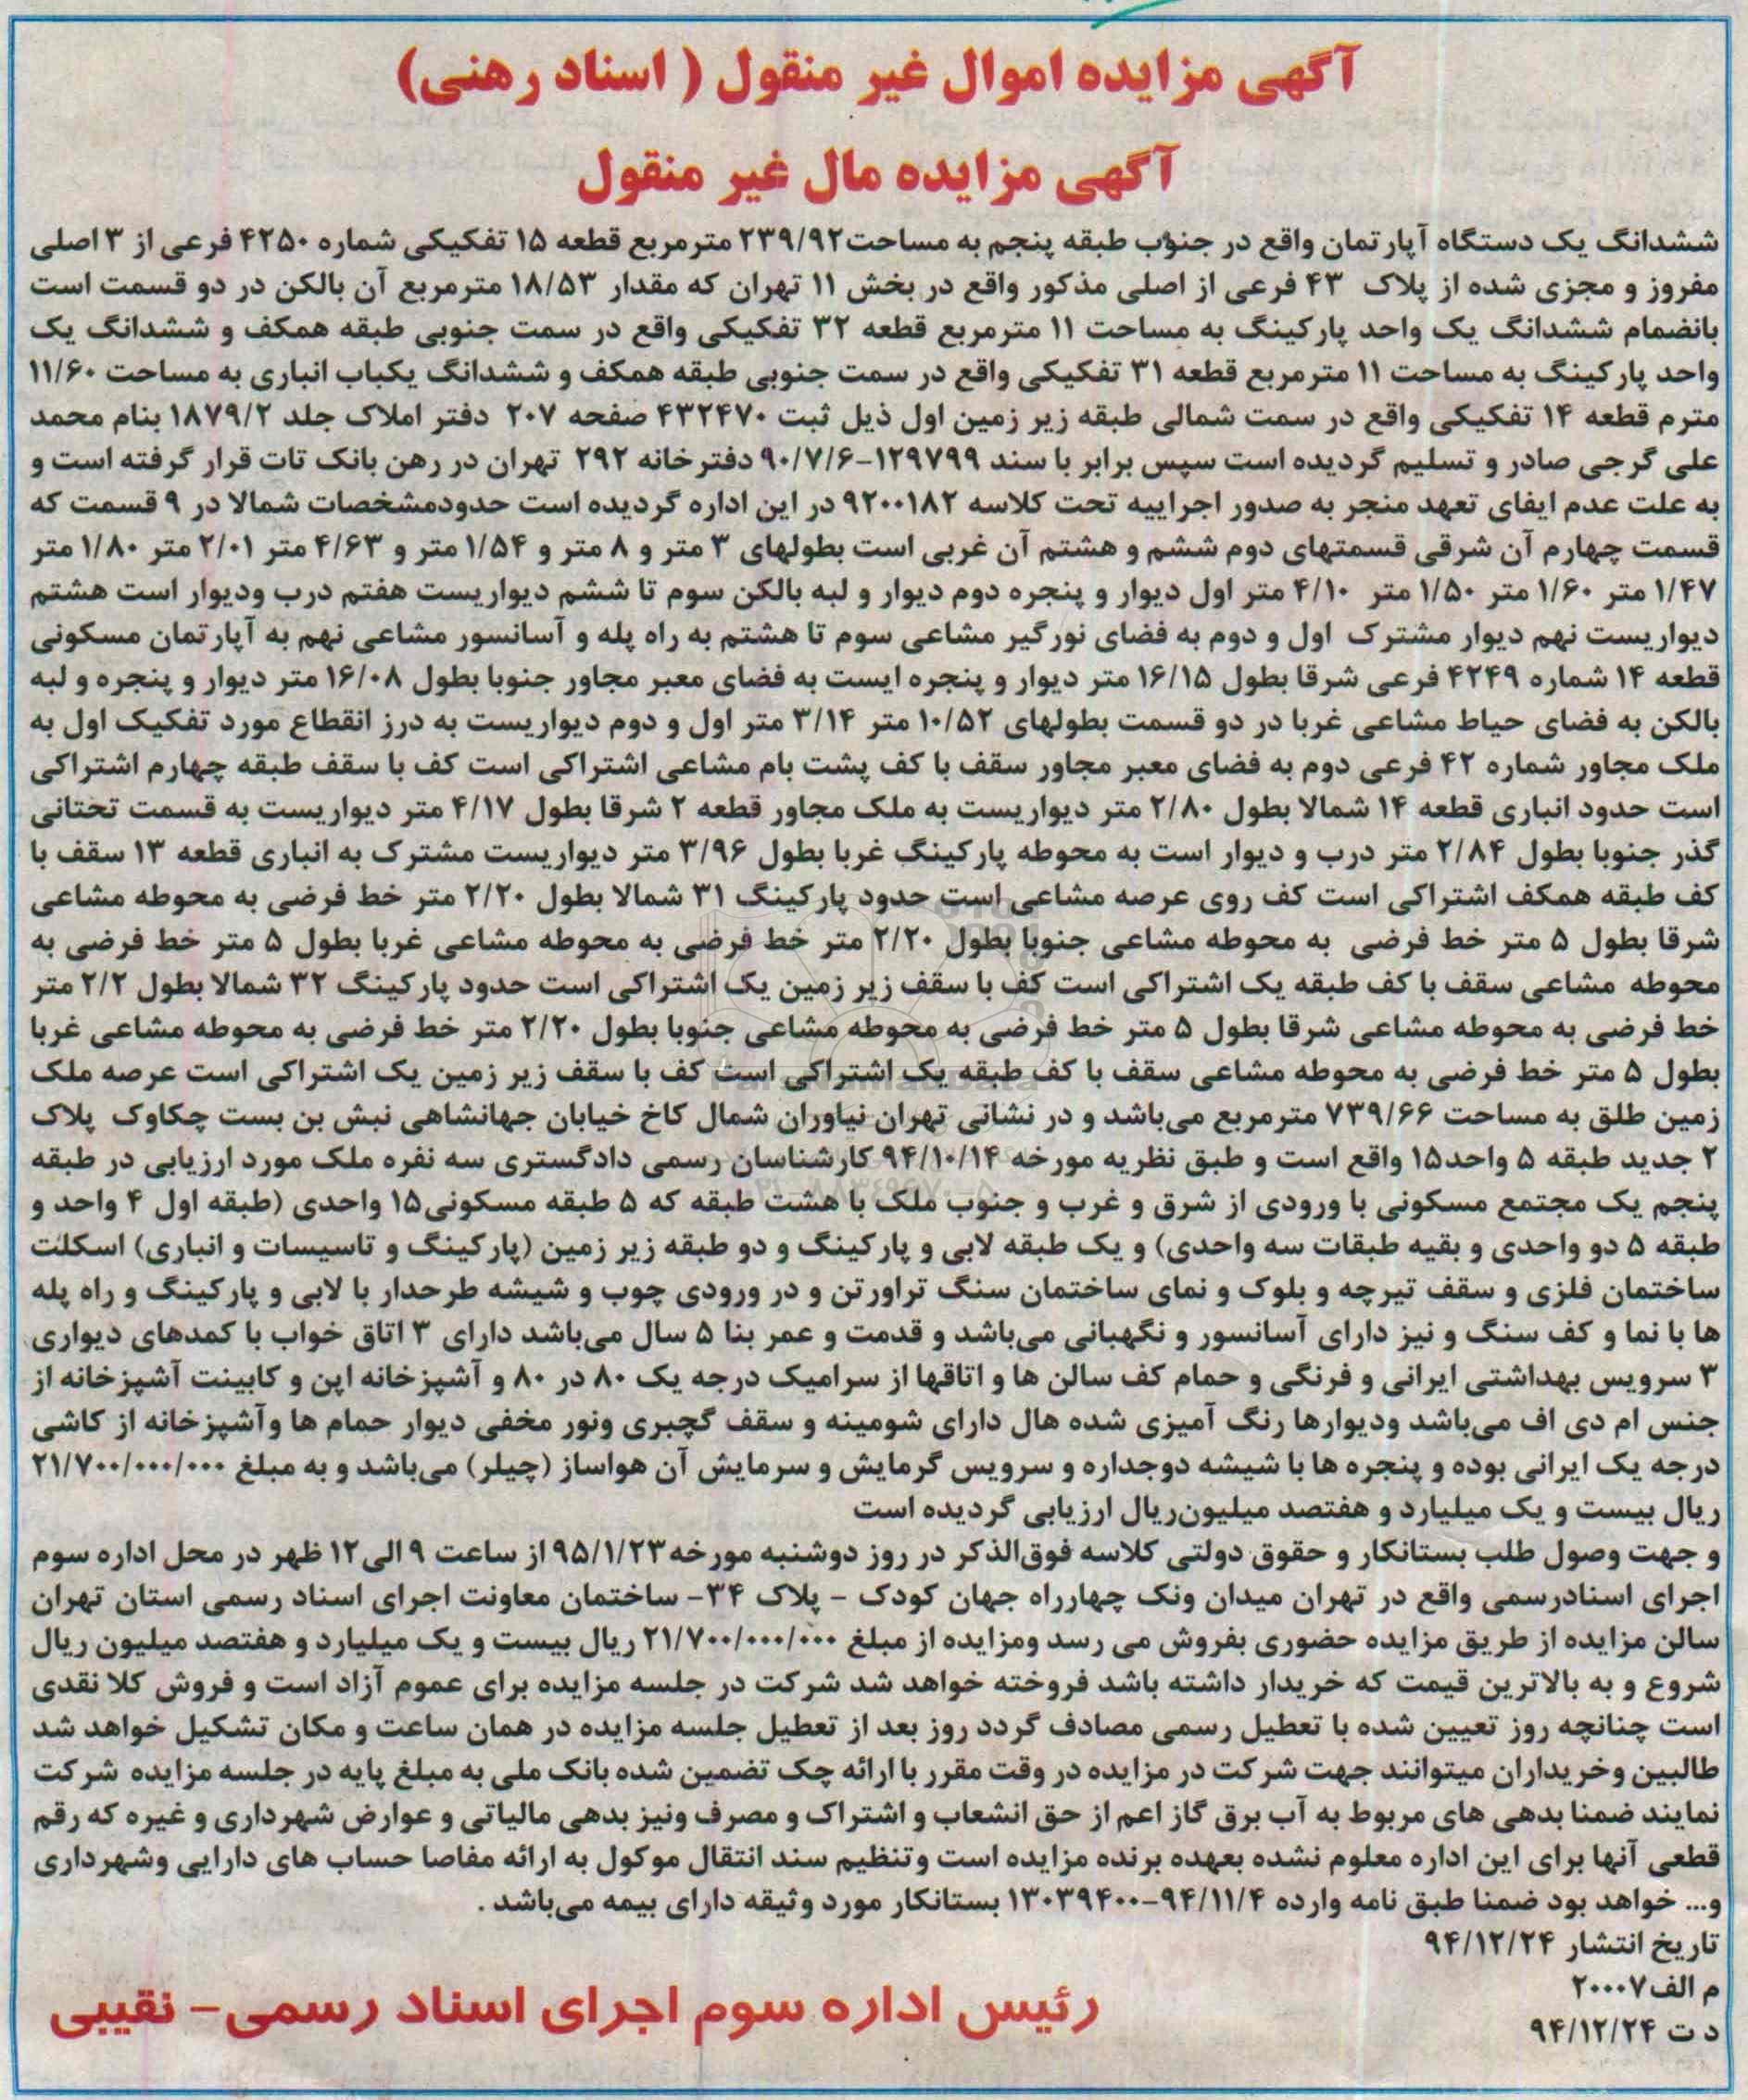 آگهی مزایده اموال غیر منقول ( اسناد رهنی)
آگهی مزایده مال غیر منقول
ششدانگ یک دستگاه آپارتمان واقع در جنوب طبقه پنجم به مساحت۲۳۹/۹۲ مترمربع قطعه ۱۵ تفکیکی شماره ۴۲۵۰ فرعی از ۳ اصلی
مفروز و مجزی شده از پلاک ۴۳ فرعی از اصلی مذکور واقع در بخش ۱۱ تهران که مقدار ۱۸/۵۳ مترمربع آن بالکن در دو قسمت است
بانضمام ششدانگ یک واحد پارکینگ به مساحت ۱۱ مترمربع قطعه ۳۲ تفکیکی واقع در سمت جنوبی طبقه همکف و ششدانگ یک
واحد پارکینگ به مساحت ۱۱ مترمربع قطعه ۳۱ تفکیکی واقع در سمت جنوبی طبقه همکف و ششدانگ یکباب انباری به مساحت ۱۱/۶۰
مترم قطعه ۱۴ تفکیکی واقع در سمت شمالی طبقه زیر زمین اول ذیل ثبت ۴۳۲۴۷۰ صفحه ۲۰۷ دفتر املاک جلد ۱۸۷۹/۲ بنام محمد
علی گرجی صادر و تسلیم گردیده است سپس برابر با سند ۱۲۹۷۹۹-۹۰/۷/۶ دفترخانه ۲۹۲ تهران در رهن بانک تات قرار گرفته است و
به علت عدم ایفای تعهد منجر به صدور اجراییه تحت کلاسه ۹۲۰۰۱۸۲ در این اداره گردیده است حدودمشخصات شمالا در ۹ قسمت که
قسمت چهارم آن شرقی قسمتهای دوم ششم و هشتم آن غربی است بطولهای ۳ متر و ۸ متر و ۱/۵۴ متر و ۴/۶۳ متر ۲/۰۱ متر ۱/۸۰ متر
۱/۴۷ متر ۱/۶۰ متر ۱/۵۰ متر ۴/۱۰ متر اول دیوار و پنجره دوم دیوار و لبه بالکن سوم تا ششم دیواریست هفتم درب ودیوار است هشتم
دیواریست نهم دیوار مشترک اول و دوم به فضای نورگیر مشاعی سوم تا هشتم به راه پله و آسانسور مشاعی نهم به آپارتمان مسکونی
قطعه ۱۴ شماره ۴۲۴۹ فرعی شرقا بطول ۱۶/۱۵ متر دیوار و پنجره ایست به فضای معبر مجاور جنوبا بطول ۱۶/۰۸ متر دیوار و پنجره و لبه
بالکن به فضای حیاط مشاعی غربا در دو قسمت بطولهای ۱۰/۵۲ متر ۳/۱۴ متر اول و دوم دیواریست به درز انقطاع مورد تفکیک اول به
ملک مجاور شماره ۴۲ فرعی دوم به فضای معبر مجاور سقف با کف پشت بام مشاعی اشتراکی است کف با سقف طبقه چهارم اشتراکی
است حدود انباری قطعه ۱۴ شمالا بطول ۲/۸۰ متر دیواریست به ملک مجاور قطعه ۲ شرقا بطول ۴/۱۷ متر دیواریست به قسمت تحتانی
گذر جنوبا بطول ۲/۸۴ متر درب و دیوار است به محوطه پارکینگ غربا بطول ۳/۹۶ متر دیواریست مشترک به انباری قطعه ۱۳ سقف با
کف طبقه همکف اشتراکی است کف روی عرصه مشاعی است حدود پارکینگ ۳۱ شمالا بطول ۲/۲۰ متر خط فرضی به محوطه مشاعی
شرقا بطول ۵ متر خط فرضی به محوطه مشاعی جنوبا بطول ۲/۲۰ متر خط فرضی به محوطه مشاعی غربا بطول ۵ متر خط فرضی به
محوطه مشاعی سقف با کف طبقه یک اشتراکی است کف با سقف زیر زمین یک اشتراکی است حدود پارکینگ ۳۲ شمالا بطول ۲/۲ متر
خط فرضی به محوطه مشاعی شرقا بطول ۵ متر خط فرضی به محوطه مشاعی جنوبا بطول ۲/۲۰ متر خط فرضی به محوطه مشاعی غربا
بطول ۵ متر خط فرضی به محوطه مشاعی سقف با کف طبقه یک اشتراکی است کف با سقف زیر زمین یک اشتراکی است عرصه ملک
زمین طلق به مساحت ۷۳۹/۶۶ مترمربع می‌باشد و در نشانی تهران نیاوران شمال کاخ خیابان جهانشاهی نبش بن بست چکاوک پلاک
۲ جدید طبقه ۵ واحد۱۵ واقع است و طبق نظریه مورخه ۹۴/۱۰/۱۴ کارشناسان رسمی دادگستری سه نفره ملک مورد ارزیابی در طبقه
پنجم یک مجتمع مسکونی با ورودی از شرق و غرب و جنوب ملک با هشت طبقه که ۵ طبقه مسکونی۱۵ واحدی (طبقه اول ۴ واحد و
طبقه ۵ دو واحدی و بقیه طبقات سه واحدی) و یک طبقه لابی و پارکینگ و دو طبقه زیر زمین (پارکینگ و تاسیسات و انباری) اسکلت
ساختمان فلزی و سقف تیرچه و بلوک و نمای ساختمان سنگ تراورتن و در ورودی چوب و شیشه طرحدار با لابی و پارکینگ و راه پله
ها با نما و کف سنگ و نیز دارای آسانسور و نگهبانی می‌باشد و قدمت و عمر بنا ۵ سال می‌باشد دارای ۳ اتاق خواب با کمدهای دیواری
۳ سرویس بهداشتی ایرانی و فرنگی و حمام کف سالن ها و اتاقها از سرامیک درجه یک ۸۰ در ۸۰ و آشپزخانه اپن و کابینت آشپزخانه از
جنس ام دی اف می‌باشد ودیوارها رنگ آمیزی شده هال دارای شومینه و سقف گچبری ونور مخفی دیوار حمام ها وآشپزخانه از کاشی
درجه یک ایرانی بوده و پنجره ها با شیشه دوجداره و سرویس گرمایش و سرمایش آن هواساز (چیلر) می‌باشد و به مبلغ ۲۱/۷۰۰/۰۰۰/۰۰۰
ریال بیست و یک میلیارد و هفتصد میلیون‌ریال ارزیابی گردیده است
و جهت وصول طلب بستانکار و حقوق دولتی کلاسه فوق‌الذکر در روز دوشنبه مورخه۹۵/۱/۲۳ از ساعت ۹ الی۱۲ ظهر در محل اداره سوم
اجرای اسنادرسمی واقع در تهران میدان ونک چهارراه جهان کودک - پلاک ۳۴- ساختمان معاونت اجرای اسناد رسمی استان تهران
سالن مزایده از طریق مزایده حضوری بفروش می رسد ومزایده از مبلغ ۲۱/۷۰۰/۰۰۰/۰۰۰ ریال بیست و یک میلیارد و هفتصد میلیون ریال
شروع و به بالاترین قیمت که خریدار داشته باشد فروخته خواهد شد شرکت در جلسه مزایده برای عموم آزاد است و فروش کلا نقدی
است چنانچه روز تعیین شده با تعطیل رسمی مصادف گردد روز بعد از تعطیل جلسه مزایده در همان ساعت و مکان تشکیل خواهد شد
طالبین وخریداران میتوانند جهت شرکت در مزایده در وقت مقرر با ارائه چک تضمین شده بانک ملی به مبلغ پایه در جلسه مزایده شرکت
نمایند ضمنا بدهی های مربوط به آب برق گاز اعم از حق انشعاب و اشتراک و مصرف ونیز بدهی مالیاتی و عوارض شهرداری و غیره که رقم
قطعی آنها برای این اداره معلوم نشده بعهده برنده مزایده است وتنظیم سند انتقال موکول به ارائه مفاصا حساب های دارایی وشهرداری
و... خواهد بود ضمنا طبق نامه وارده ۹۴/۱۱/۴-۱۳۰۳۹۴۰۰ بستانکار مورد وثیقه دارای بیمه می‌باشد .
تاریخ انتشار ۹۴/۱۲/۲۴
م الف۲۰۰۰۷
د ت ۹۴/۱۲/۲۴
رئیس اداره سوم اجرای اسناد رسمی- نقیبی